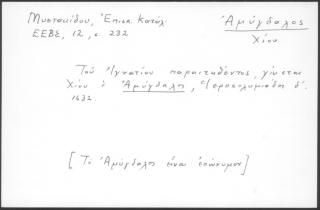 Μυστακίδου, Ἐπισκ. Κατάλ. Ἀμύγδαλος
ΕΕΒΣ, 12, σ. 232 Χίου.
Τοῦ Ἰγνατίου παραιτηθέντος, γίνεται
Χίου ὁ Ἀμύγδαλης, Ἱεροκλυμιάδη δ΄.
1632.
[Τὸ Ἀμύγδαλης εἶναι ἐπώνυμον]